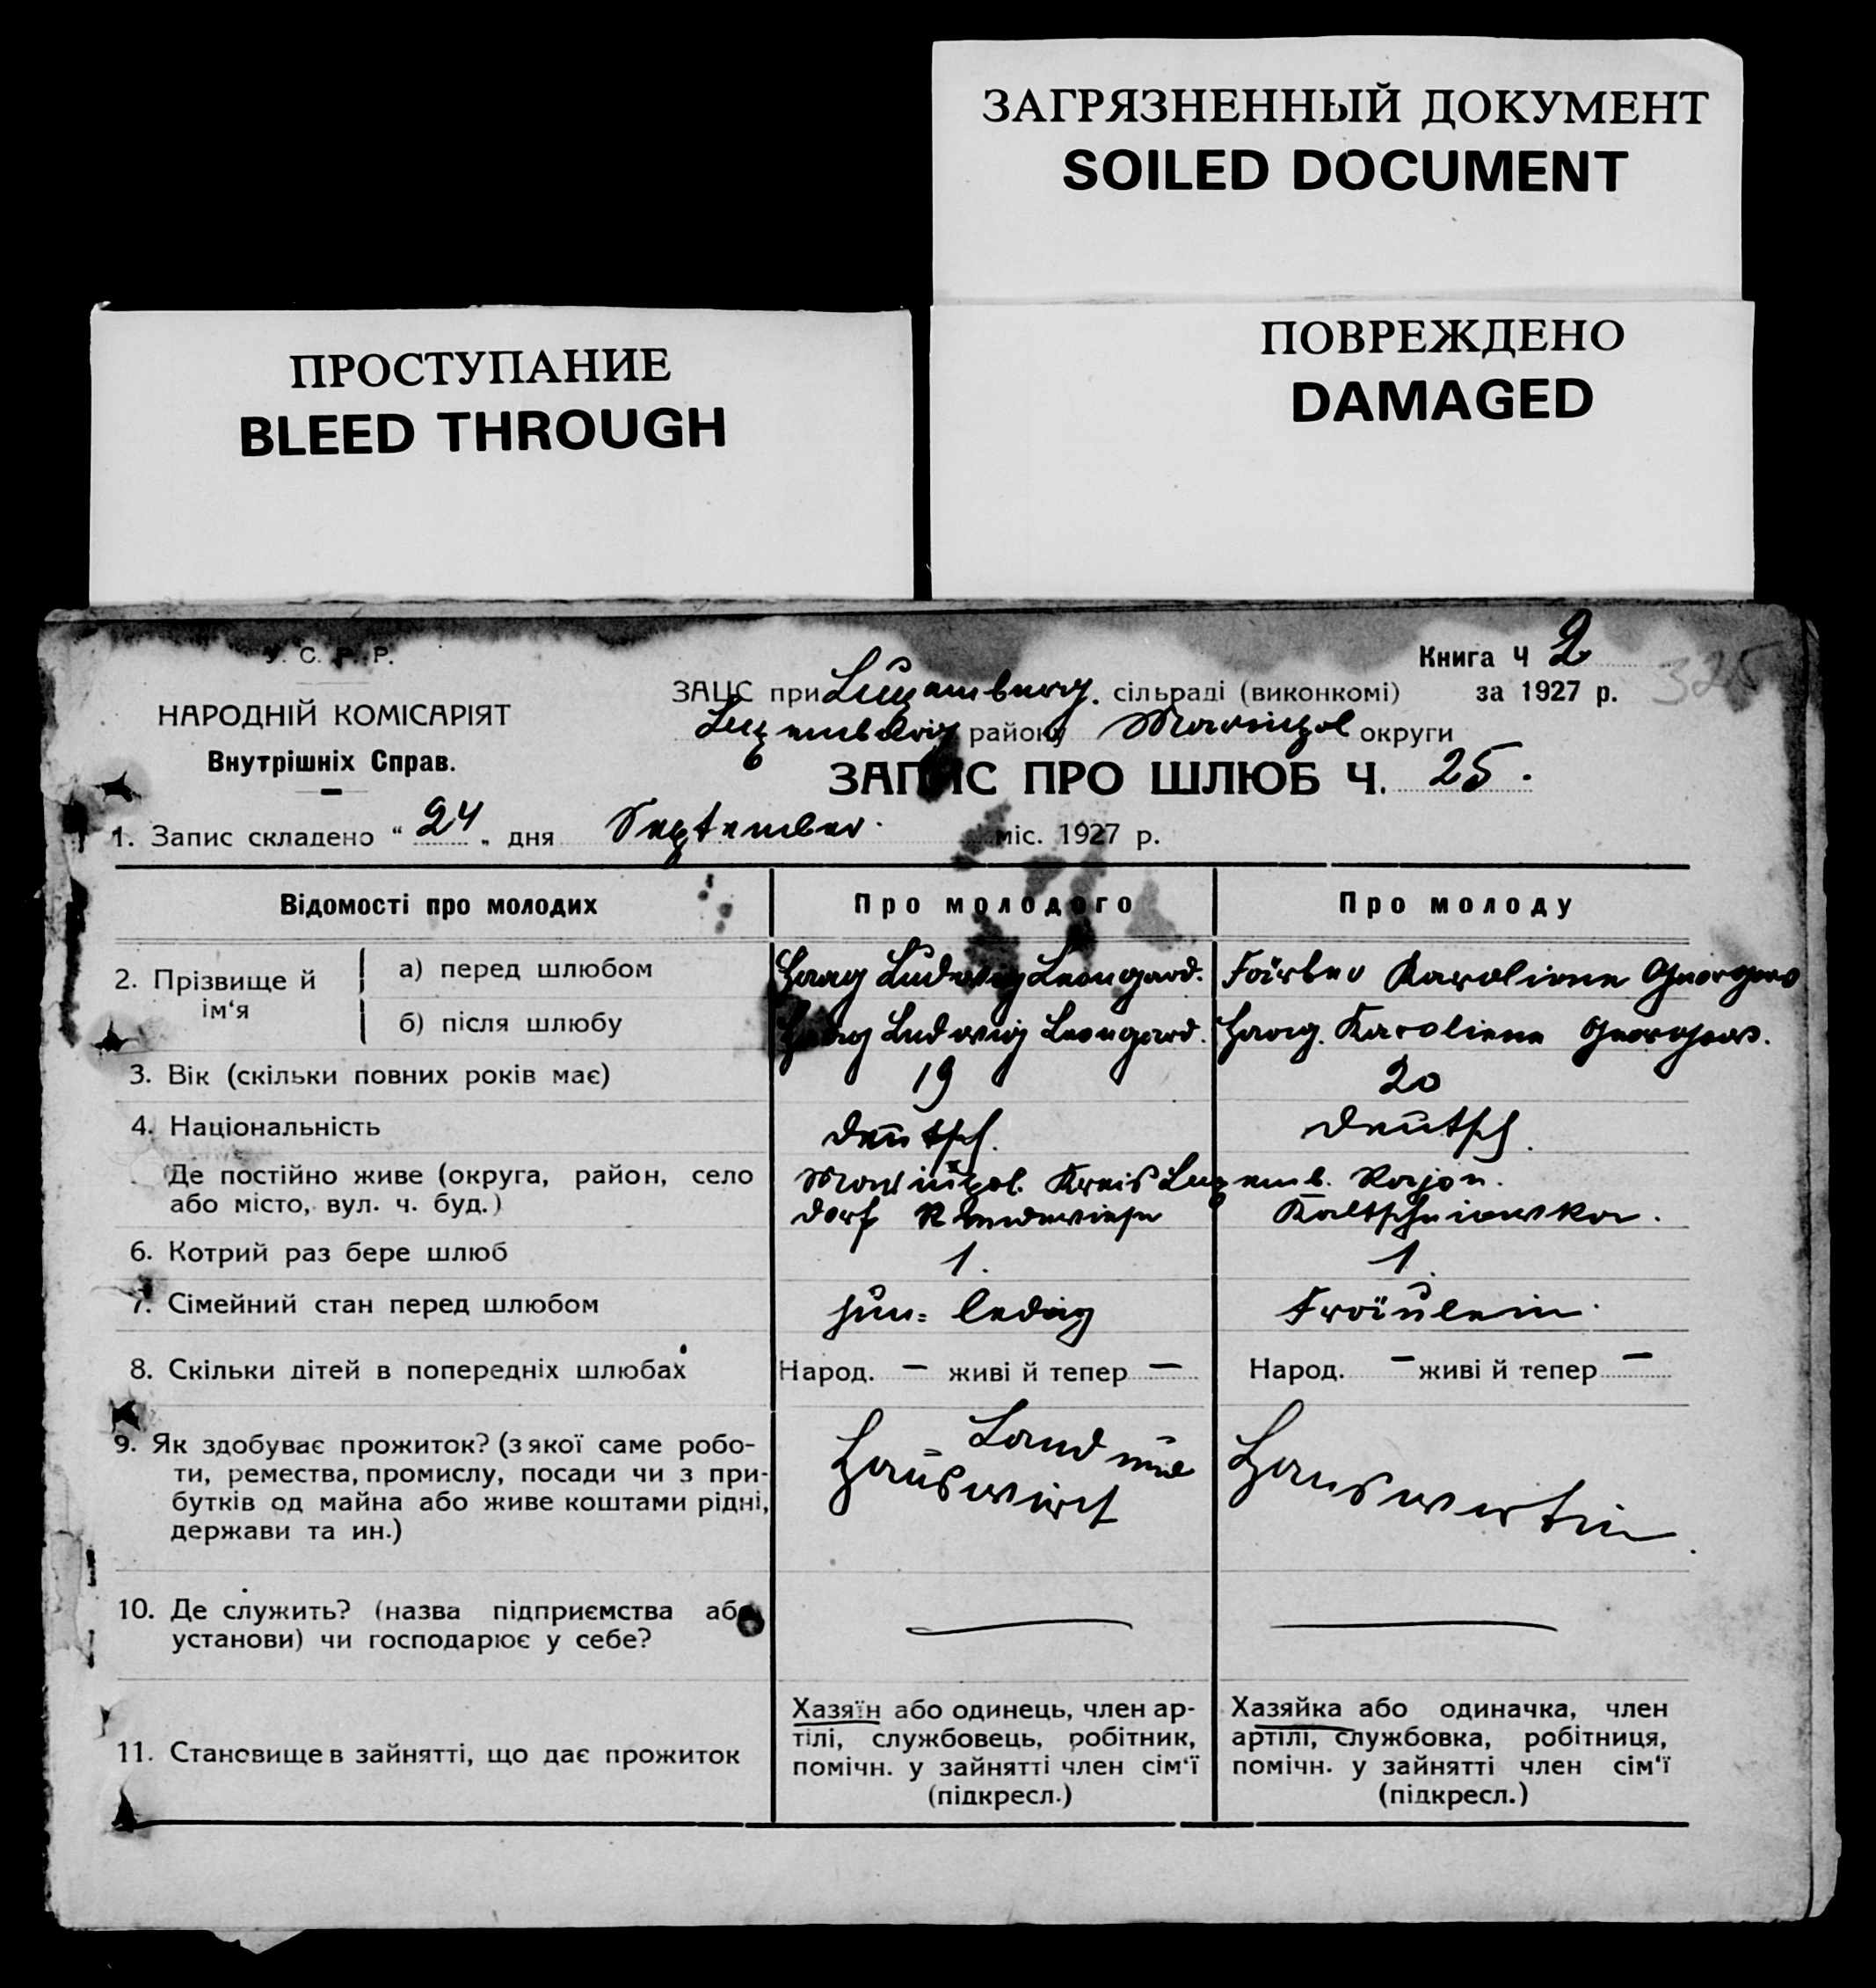 ЗАГРЯЗНЕННЫЙ ДОКУМЕНТ
SOILED DOCUMENT
ПРОСТУПАНИЕ
BLEED THROUGH
ПОВРЕЖДЕНО
DAMAGED
У. С. Р. Р.
Книга Ч 2
за 1927 р.
325
НАРОДНІЙ КОМІСАРІЯТ
Внутрішніх Справ.
ЗАЦС при Luxemburg. сільраді (виконкомі)
Luxemburg району Mariupol округи
ЗАПИС ПРО ШЛЮБ Ч. 25.
1. Запис складено “ 24 „ дня September. міс. 1927 р.
Відомості про молодих
Про молодого
Про молоду
2. Прізвище й ім‘я
а) перед шлюбом
Haag Ludwig Leongard.
Färber Karoliene Georgews
б) після шлюбу
Haag Ludwig Leongard.
Haag. Karoliene Georgews.
3. Вік (скільки повних років має)
19
20
4. Національність
deutsch.
deutsch.
Де постійно живе (округа, район, село
або місто, вул. ч. буд.)
Mariupol. Kreis Luxemb. Rajon.
dorf
Kaltschiniowka.
6. Котрий раз бере шлюб
1.
1.
7. Сімейний стан перед шлюбом
ledig
Fräulein.
8. Скільки дітей в попередніх шлюбах
Народ. — живі й тепер —
Народ. — живі й тепер —
9. Як здобуває прожиток? (з якої саме робо-
ти, ремества, промислу, посади чи з при-
бутків од майна або живе коштами рідні,
держави та ин.)
Land und
Hauswirt
Hauswirtin.
10. Де служить? (назва підприємства або
установи) чи господарює у себе?
11. Становище в зайнятті, що дає прожиток
Хазяїн або одинець, член ар-
тілі, службовець, робітник,
помічн. у зайнятті член сім‘ї
(підкресл.)
Хазяйка або одиначка, член
артілі, службовка, робітниця,
помічн. у зайнятті член сім‘ї
(підкресл.)